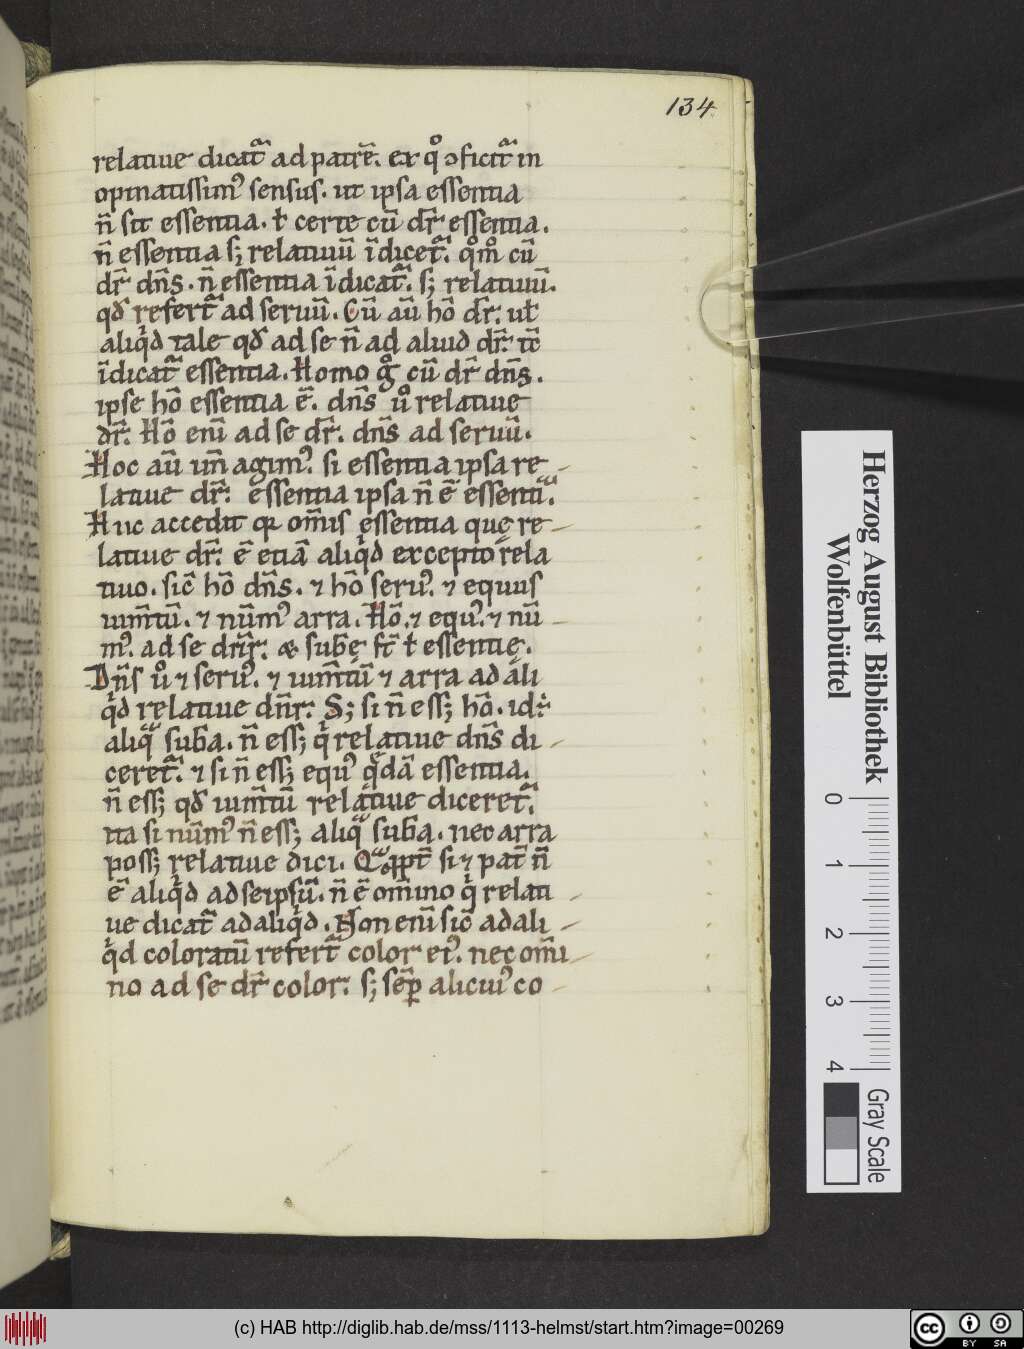 134
relatiue dicat᷑ ad patrē. ex qͦ ↄficit᷑ in
opinatissimꝰ sensus. ut ipsa essentia
n̄ sit essentia. ł certe cū dr̄ essentia.
n̄ essentia s; relatiuū īdicet᷑. qͦmͦ cū
dr̄ dn̄s. n̄ essentia īdicat᷑. s; relatiuū.
qđ refert᷑ ad seruū. Cū aū hō dr̄. uł
aliqͥd tale qđ ad se n̄ ad aliud dr̄. tc̄
īdicat᷑ essentia. Homo gͦ cū dr̄ dn̄s.
ipse hō essentia ē. dn̄s uͦ relatiue
dr̄. Hō enī ad se dr̄. dn̄s ad seruū.
Hoc aū un̄ agimꝰ. si essentia ipsa re
latiue dr̄. essentia ipsa n̄ ē essentiᵃ.
Huc accedit qꝛ om̄is essentia quę re
latiue dr̄. ē etiā aliqͥd excepto rela
tiuo. sic̄ hō dn̄s. ⁊ hō seruꝰ. ⁊ equus
ium̄tū. ⁊ nūmꝰ arra. Hō. ⁊ equꝰ. ⁊ nū
mꝰ. ad se dn̄r. & subę st̄ ł essentię.
Dn̄s uͦ ⁊ seruꝰ. ⁊ ium̄tū ⁊ arra ad ali
qͥd relatiue dn̄r. S; si n̄ ess; hō. id.
aliqᵃ suba. n̄ ess; qͥ relatiue dn̄s di
ceret᷑. ⁊ si n̄ ess; equꝰ qͥdā essentia.
n̄ ess; qđ ium̄tū relatiue diceret᷑.
ita si nūmꝰ n̄ ess; aliqᵃ suba. nec arra
poss; relatiue dici. Qᵃꝓpt̄ si ⁊ pat̄ n̄
ē aliqͥd ad seipsū. n̄ ē om̄ino qͥ relati
ue dicat᷑ ad aliqͥd. Non enī sic̄ ad ali
qͥd coloratū refert᷑ color eiꝰ. nec om̄i
no ad se dr̄ color. s; sēꝑ alicuiꝰ co
Herzog August Bibliothek
Wolfenbüttel
0 1 2 3 4
Gray Scale
(c) HAB http://diglib.hab.de/mss/1113-helmst/start.htm?image=00269
cc BY SA